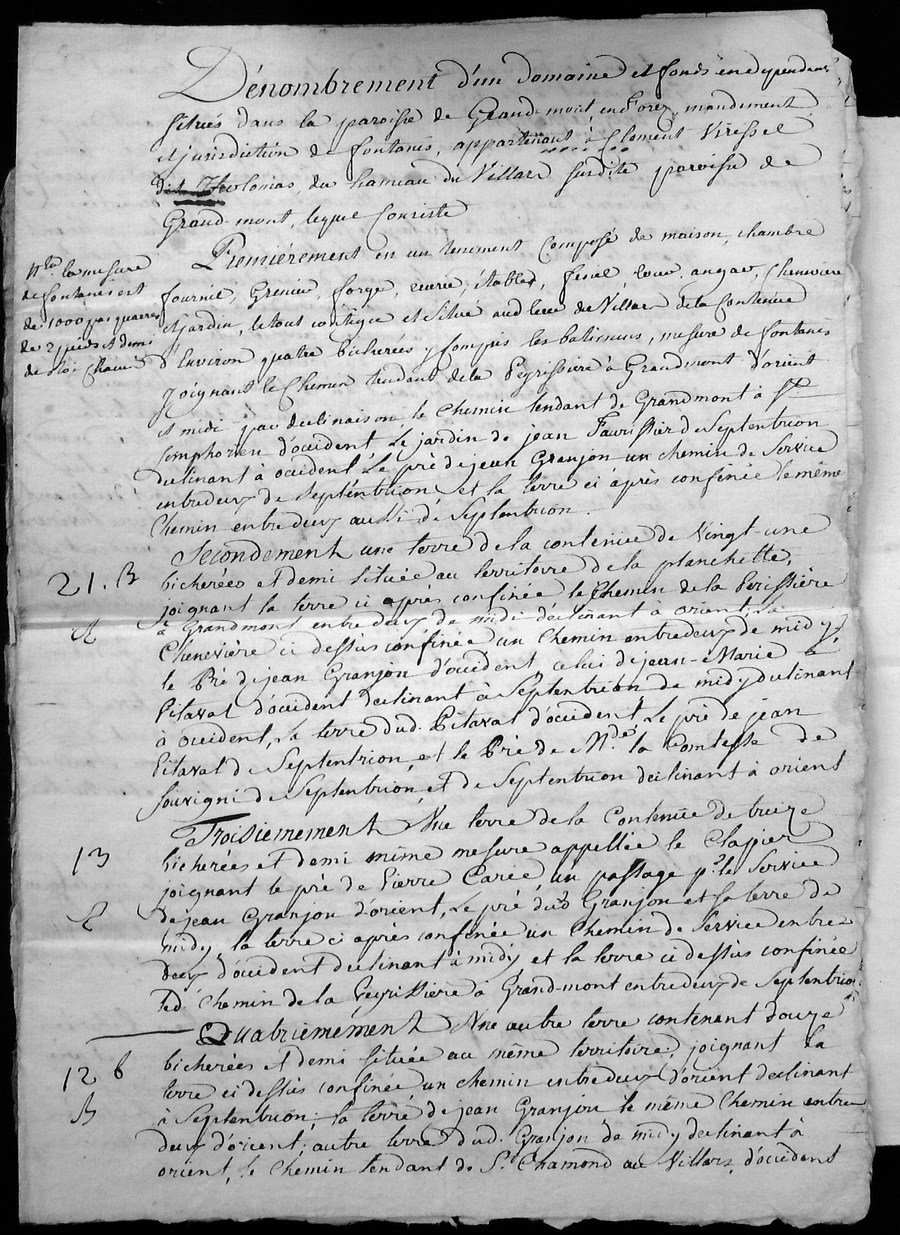 Dénombrement d'un domaine et fonds en dependens
situés dans la paroisse de Grand-mont, en Forez, mandement
et jurisdiction de fontanés, appartenant à Clement Viressel
du hameau du Villars susdite paroisse de
Grand-mont, lequel Consiste
Premiérement en un tenement Composé de maison, chambre
fournil, Grenier, forge, ecurie, étables, feniere, angar, Cheneviere
et jardin, le tout contigue et situé aud. lieu de Villars de la Contenue
d'Environ quatre bicherées y Compris les batimens, mesure de fontanés
Nta. la mesure
de fontanés est
de 1000 pas quarrés
de 2 pieds et demi
de Roi Chacun
Joignant le Chemin tendant de la Peyrissiere à Grandmont d'orient
et midi par declinaison, le Chemin tendant de Grandmont à St
Simphorien d'occident, Le jardin de jean Faurissier de Septentrion
declinant à occident, Le pré de jean Granjon un chemin de Service
entredeux de Septentrion et la terre ci après confinée le même
Chemin entredeux aussi de Septentrion.
Secondement une terre de la contenue de Vingt-une
21. B
bicherées et demi située au territoire de la planchette,
joignant la terre ci après confinée le Chemin de la Perissiére
à Grandmont entredeux de midi déclinant à orient; la
Cheneviére ci dessus confinée un Chemin entredeux de midy,
le Pré de jean Granjon d'occident celui de jean-Marie
Pitaval d'occident declinant à Septentrion de midy declinant
à occident, La terre dud. Pitaval d'occident, Le pré de jean
Pitaval de Septentrion, et le Pré de Mde. la Comtesse de
Souvigni de Septentrion, et de Septentrion declinant à orient
Troisiemement Une terre de la Contenue de treize
13
bicherées et demi même mesure appellée le Clapier
joignant le pré de Pierre Carée, un passage pr. le Service
de jean Granjon d'orient, Le pré dud Granjon et sa terre de
midy, la terre ci après confinée un Chemin de Service entre
deux d'occident declinant à midy et la terre ci dessus confinée
led. Chemin de la Peyrissiere à Grand-mont entredeux de Septentrion
Quatriémement Une autre terre contenant douze
12 b
bicherées et demi située au même territoire, joignant la
terre ci dessus confinée un chemin entredeux d'orient declinant
à Septentrion; la terre de jean Granjon le même Chemin entre
deux d'orient; autre terre dud. Granjon de midy declinant à
orient, le Chemin tendant de St. Chamond au Villars, d'occident